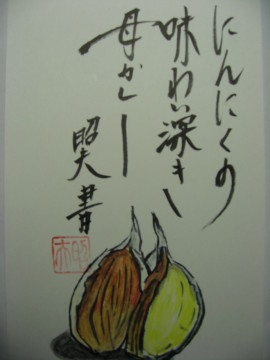 にんにくの
味わい深き
母か
昭夫 書